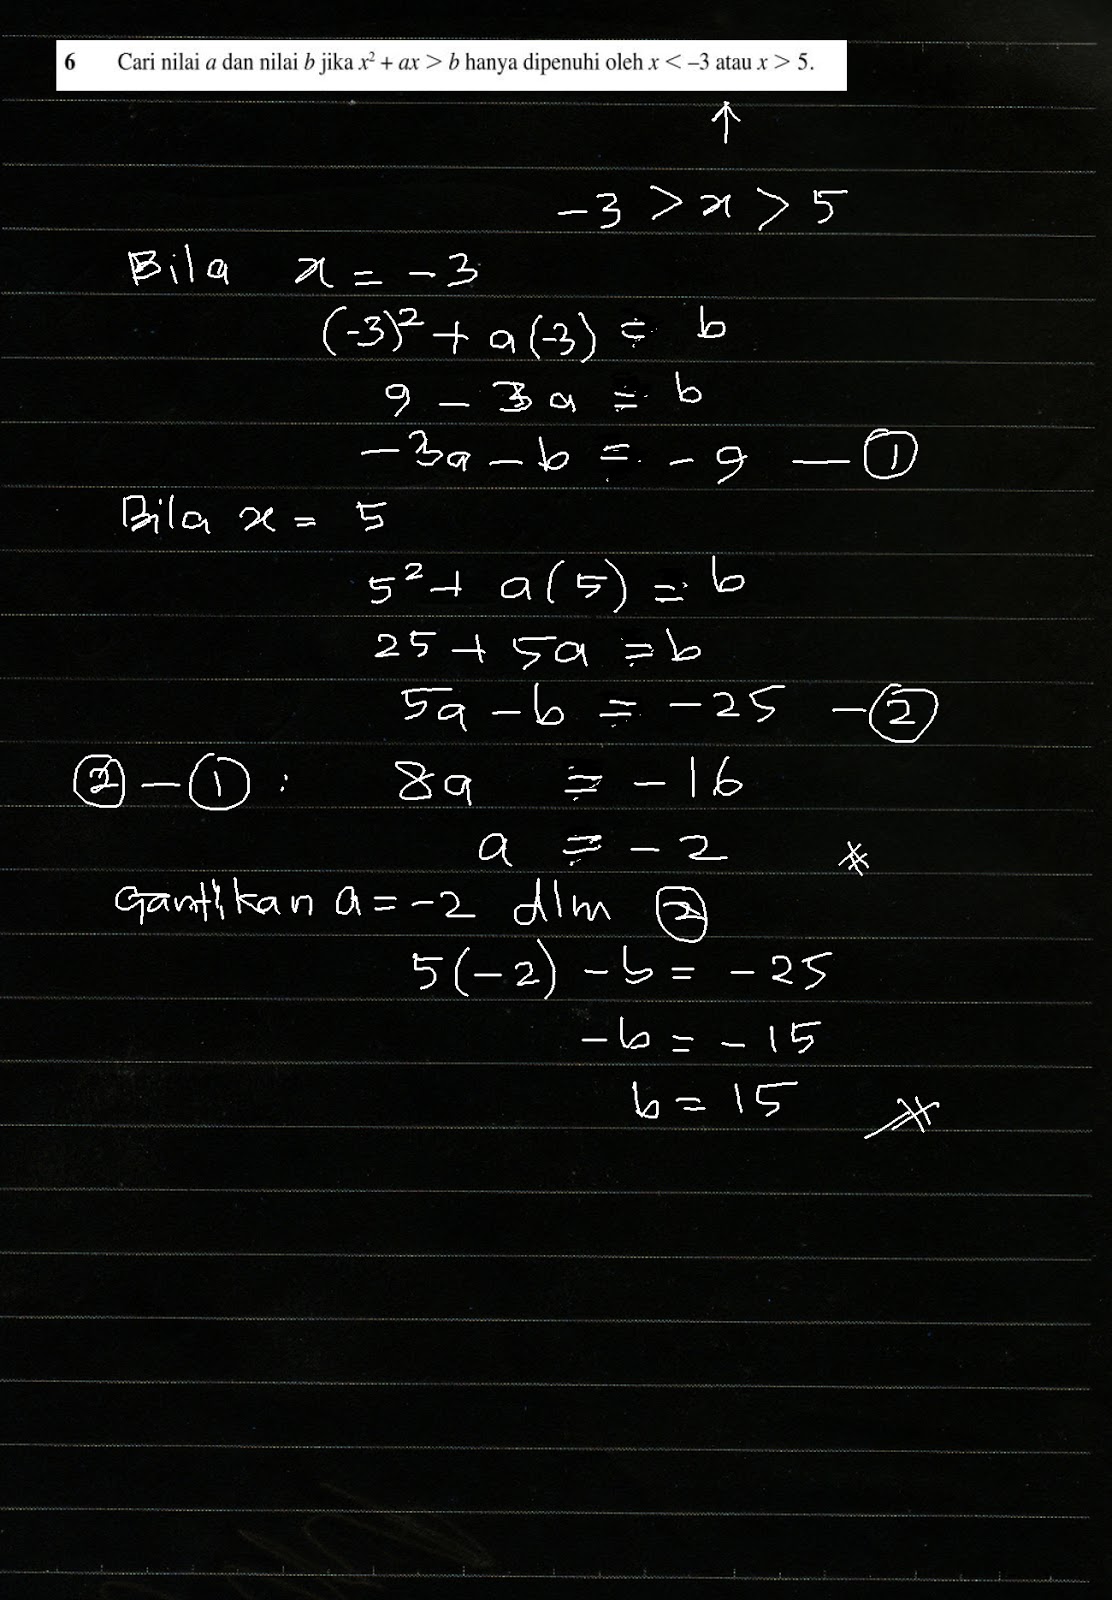 6 Cari nilai a dan nilai b jika x² + ax > b hanya dipenuhi oleh x < –3 atau x > 5.
↑
-3 > x > 5
Bila x = -3
(-3)² + a(-3) = b
9 - 3a = b
-3a - b = -9 — ①
Bila x = 5
5² + a(5) = b
25 + 5a = b
5a - b = -25 — ②
② - ① : 8a = -16
a = -2 *
Gantikan a = -2 dlm ②
5(-2) - b = -25
-b = -15
b = 15 *